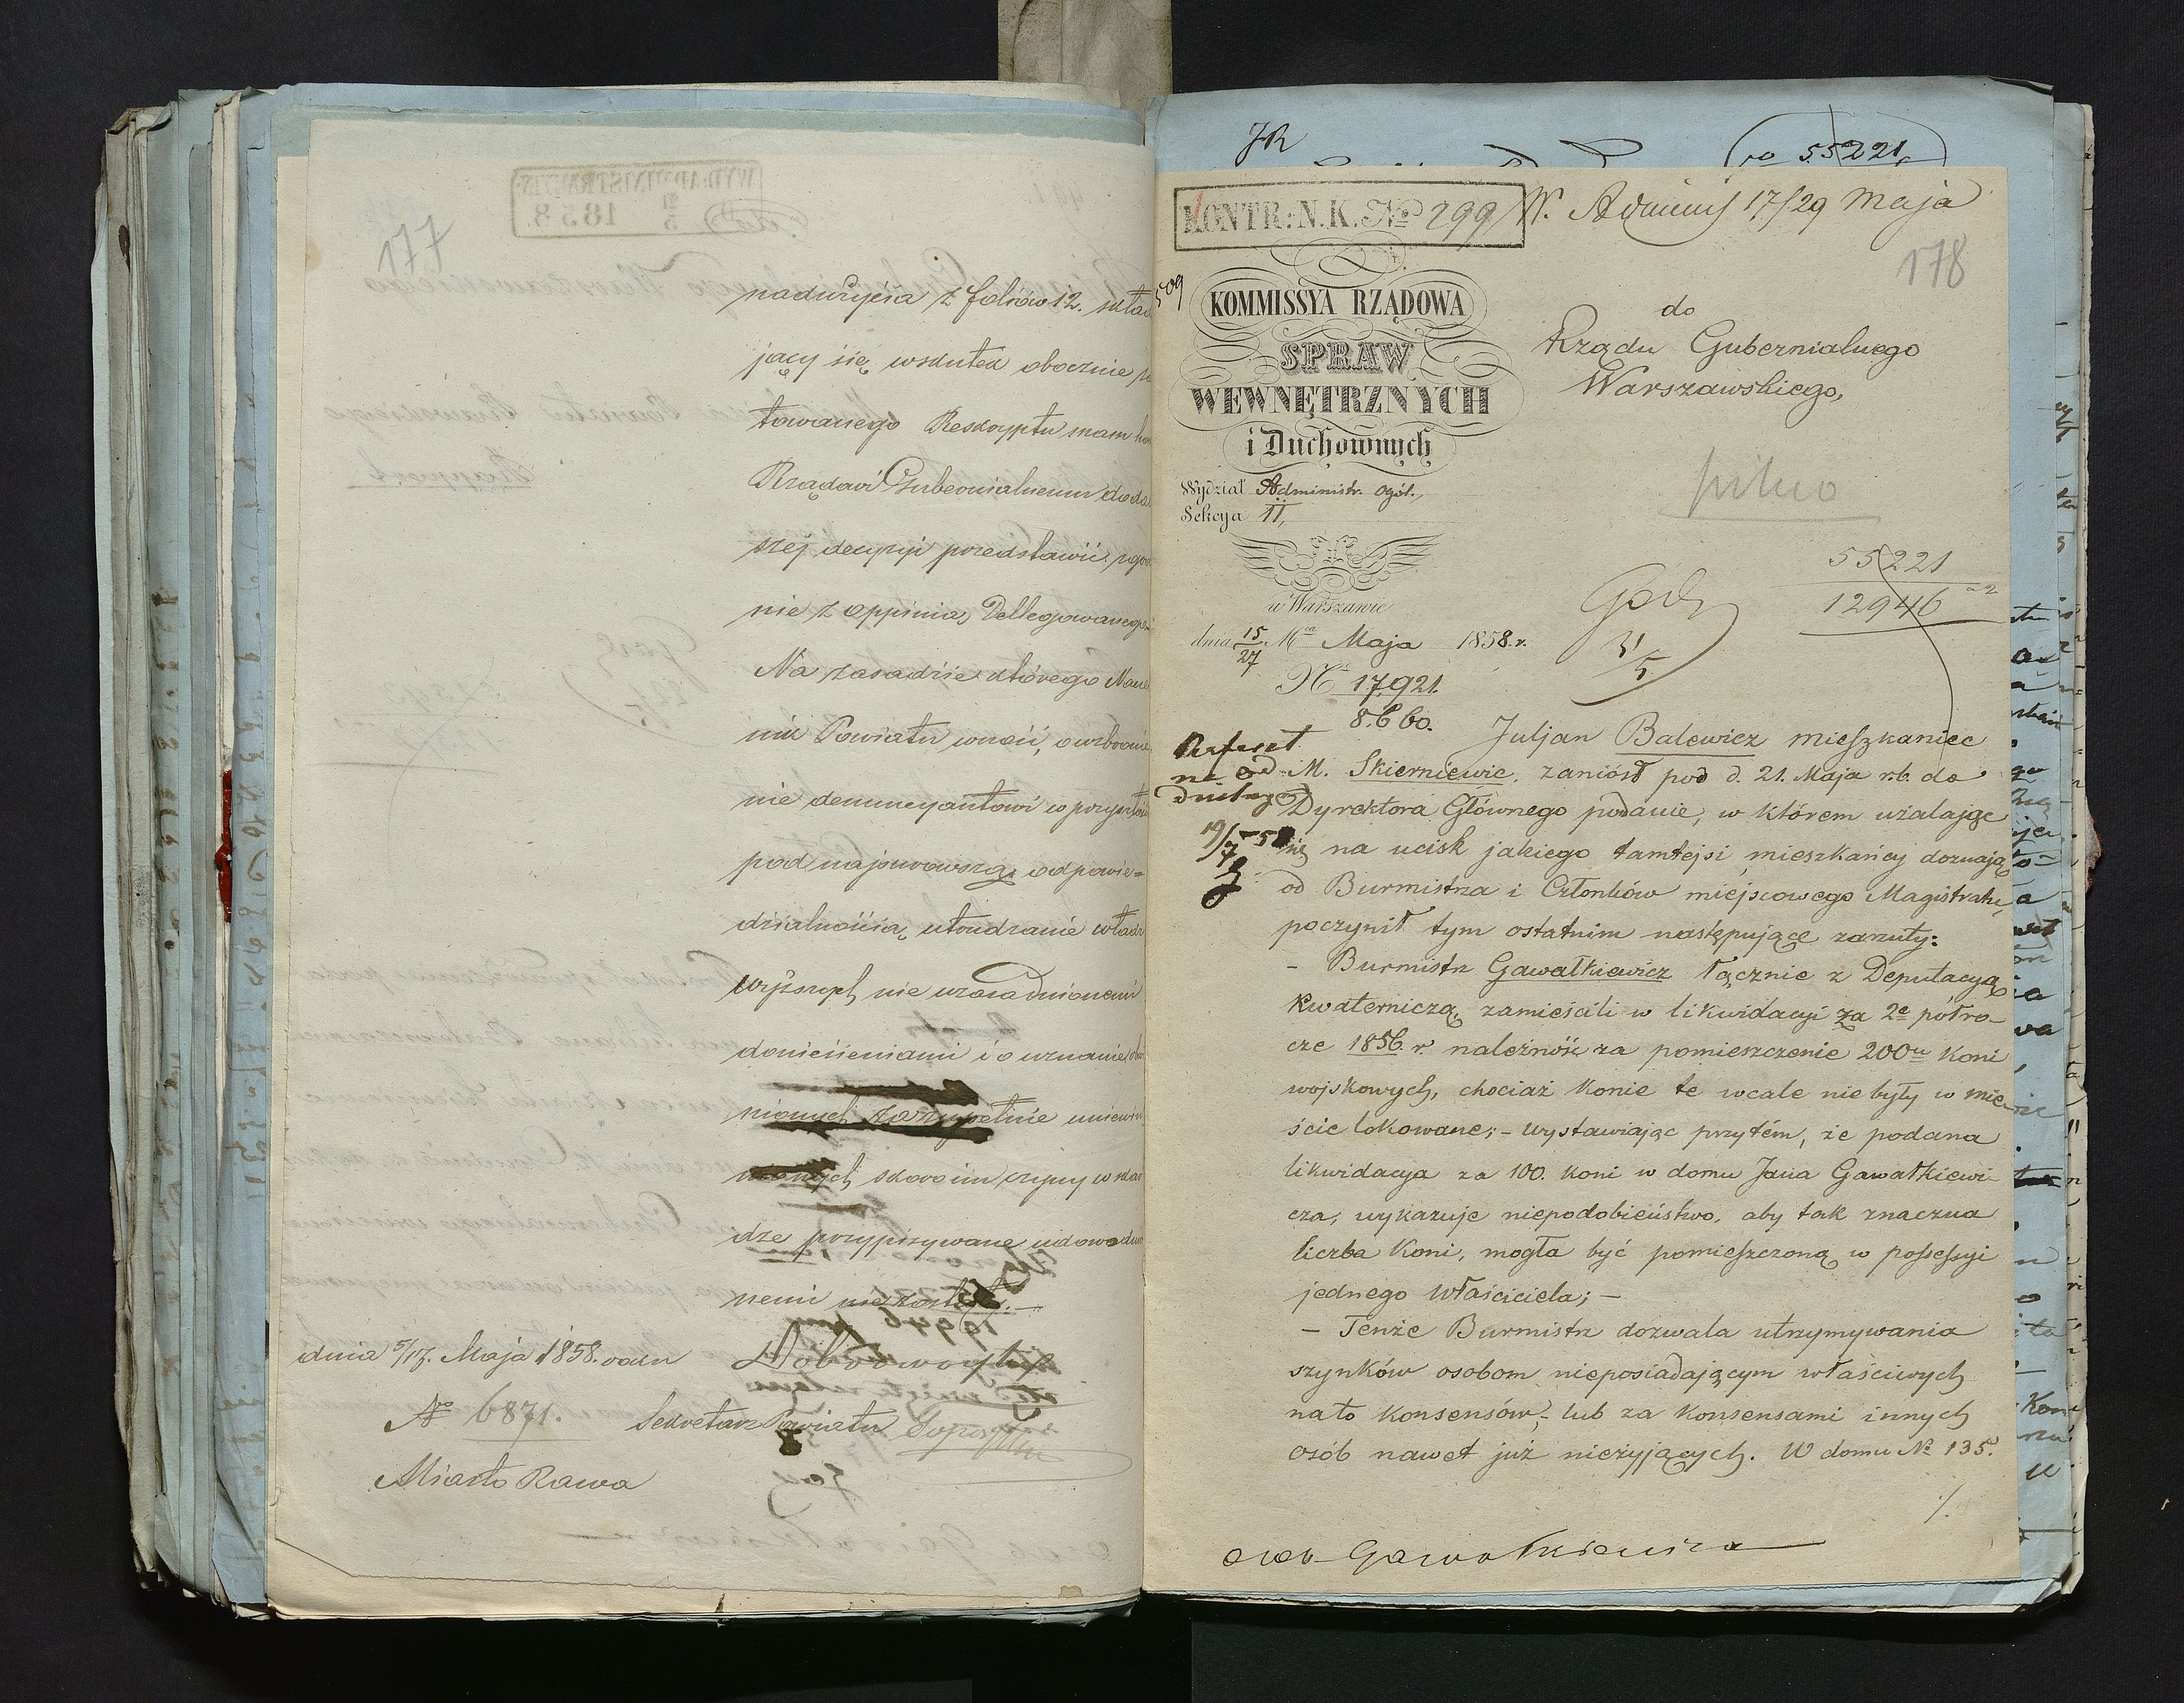 177
nadużycia z foliów 12. skła
jący się, wskutek obocznie
towanego Reskryptu mam
Rządowi Gubernialnemu do
szej decyzji przedstawić, zgod
nie z oppinią Dellegowanego
Na zasadzie którego Nacze
nik Powiatu wnosi, o wzbronie
nie denuncyantowi w przyszło
pod najsurowszą odpowie=
dzialnością, utrudzanie władz
wyższych nie uzasadnionemi
doniesieniami i o uznanie
nionych za zupełnie uniewin
nionych skoro im czyny w skar
dze przypisywane udowodnio
nemi nie zostały.—
dnia 5/17. Maja 1858. roku
№ 6871.
Sekretarz Powiatu
Miasto Rawa
JR
55221
KONTR: N.K. № 299
W. Adminis 17/29 Maja
178
509
KOMMISSYA RZĄDOWA
SPRAW
WEWNĘTRZNYCH
i Duchownych
do
Rządu Gubernialnego
Warszawskiego,
pilno
Wydział Administr. Ogól.,
Sekcya II,
w Warszawie
dnia 15/27 Mca Maja 1858 r.
№ 17,921.
8.660.
55221
12946
Juljan Balewicz mieszkaniec
M. Skierniewic, zaniósł pod d. 21. Maja r.b. do
Dyrektora Głównego podanie, w którem użalając
się na ucisk jakiego tamtejsi mieszkańcy doznają
od Burmistrza i Członków miejscowego Magistratu,
poczynił tym ostatnim następujące zarzuty:
- Burmistrz Gawałkiewicz łącznie z Deputacyą
Kwaterniczą, zamieścili w likwidacyi za 2e półro-
cze 1856. r. należność za pomieszczenie 200u Koni
wojskowych, chociaż Konie te wcale nie były w mie-
ście lokowane; - wystawiając przytém, że podana
likwidacya za 100. koni w domu Jana Gawałkiewi-
cza, wykazuje niepodobieństwo, aby tak znaczna
liczba Koni, mogła być pomieszczoną w possessyi
jednego właściciela; -
- Tenże Burmistrz dozwala utrzymywania
szynków osobom nieposiadającym właściwych
na to Konsensów, - lub za Konsensami innych
osób nawet już nieżyjących. W domu № 135.
./.